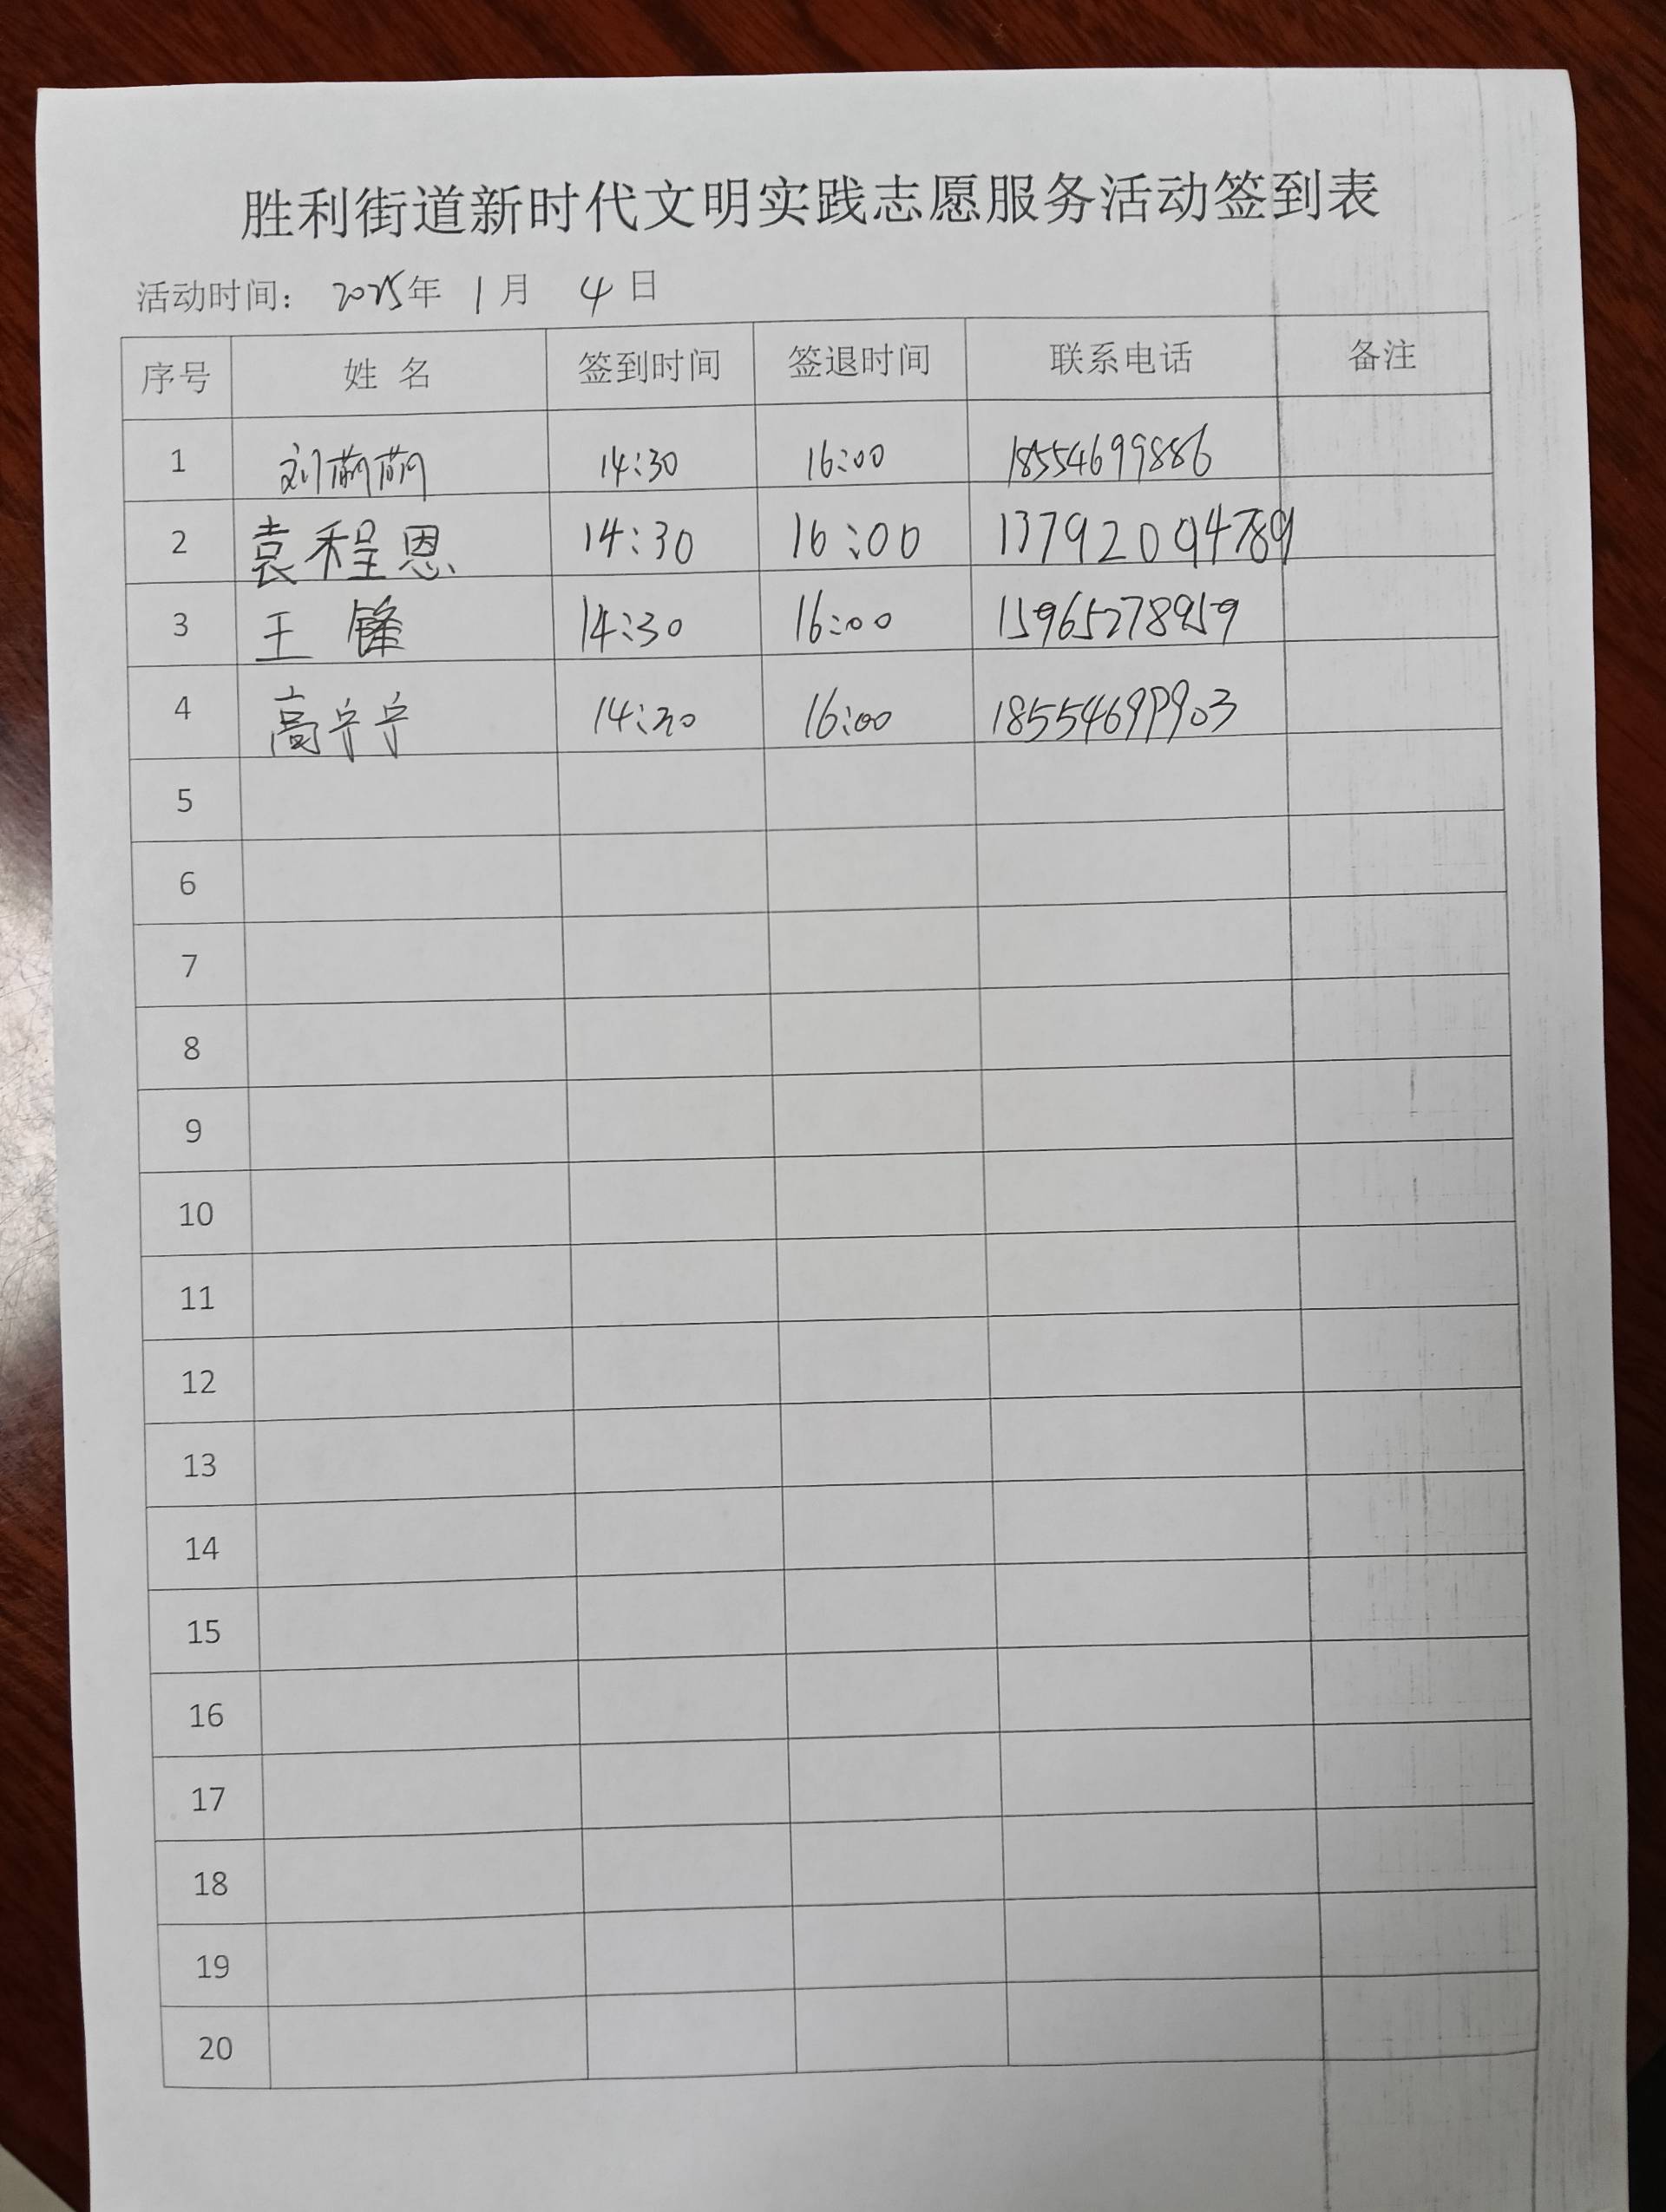 胜利街道新时代文明实践志愿服务活动签到表
活动时间： 2025年 1月 4日
序号 姓 名 签到时间 签退时间 联系电话 备注
1 刘萌萌 14:30 16:00 18554699886
2 袁程恩 14:30 16:00 13792094789
3 王锋 14:30 16:00 15965278959
4 高宁宁 14:30 16:00 18554699903
5
6
7
8
9
10
11
12
13
14
15
16
17
18
19
20